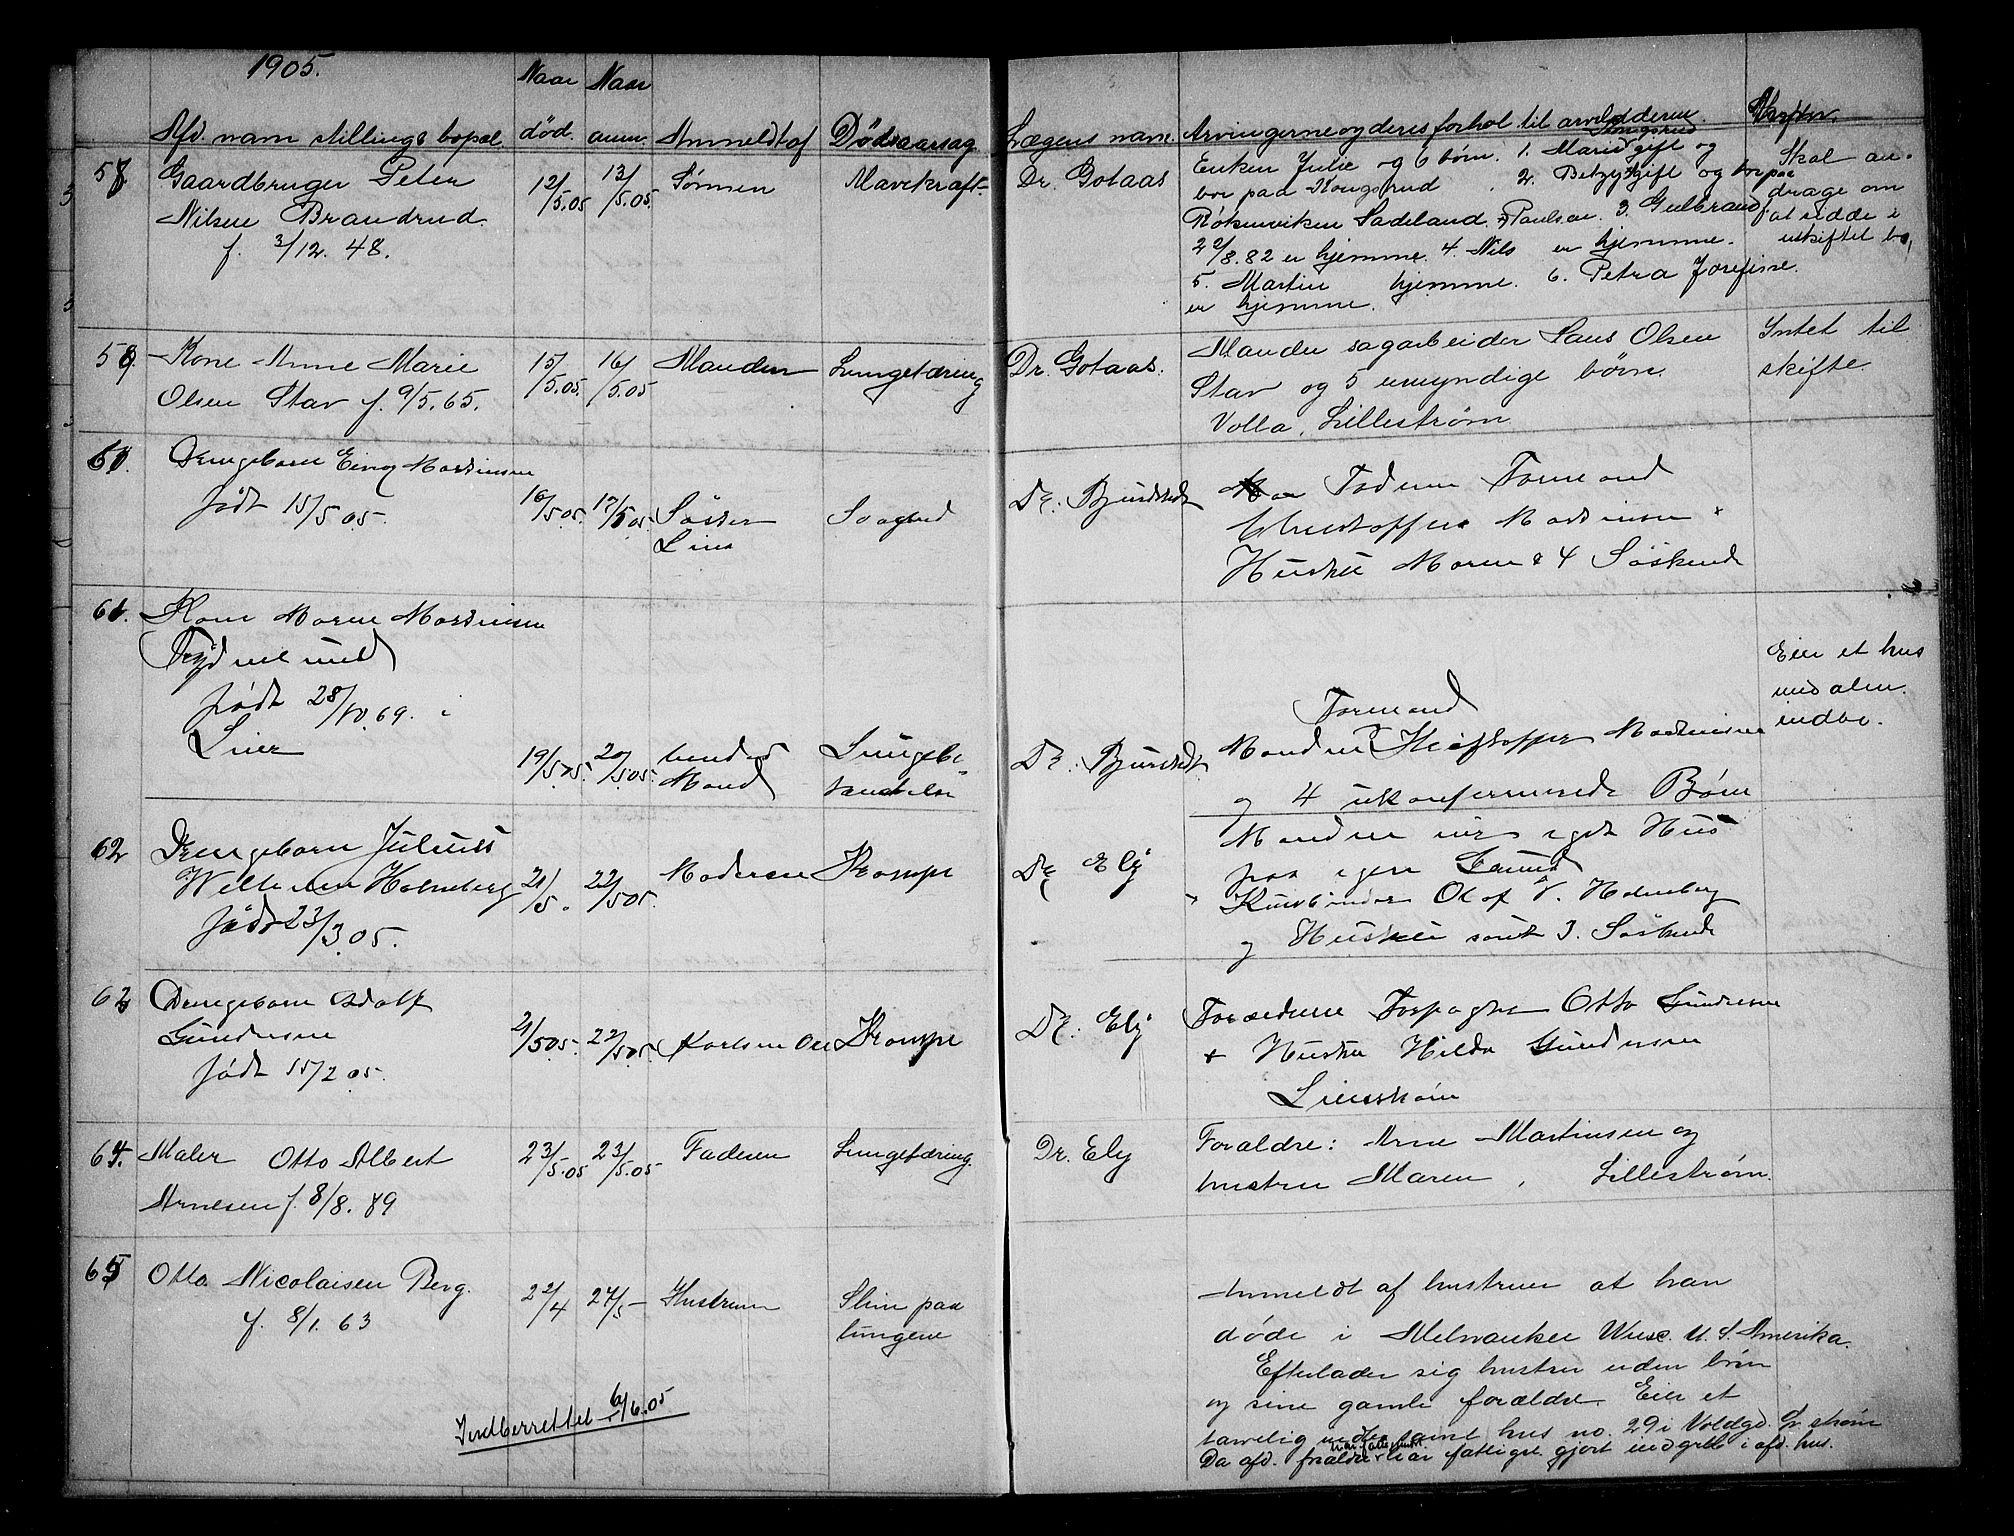 1905.
Naar Naar
Afd. navn stilling & bopæl død. anm. Anmeldt af Dødsaarsag
58 Gaardbruger Peter 12/5.05 13/5.05. Sønnen Mavekræft
Nilsen Brandrud.
f. 3/12. 48.
59. Kone Anne Marie 15/5.05. 16/5.05 Manden Lungetæring
Olsen Stav f. 9/5.65.
60. Drengebarn Martinsen
født 15/5 05. 16/5 05. 17/5 05. Søster Svaghed
Lina
61. Kone Maren Martinsen
født 28/10 69. i
Lier
19/5 05. 20/5 05. Mand Lungebe-
tændelse
62 Drengebarn Julius
Wilhelm Holmberg 21/5. 22/5 05. Moderen Krampe
født 23/3 05.
63 Drengebarn Adolf
Gundersen 21/5 05. 22/5 05. Karlsen Krampe
født 15/2 05.
64. Maler Otto Albert 23/5.05 23/5.05 Faderen Lungetæring.
Arnesen f. 8/8. 89
65 Otto Nicolaisen Berg. 22/4 24/5 Hustruen Slim paa
f. 8/1. 63 lungene
Indberrettet 6/6.05
Lægens navn. Arvingerne og deres forhol til arveladderen
Dr. Gotaas Enken Julie og 6 børn. 1. Marie gift og Skal an-
bor paa Kongsrud. 2. Betzy gift og bor paa drage om
Røkenviken Hadeland, Paulsen. 3. Gulbrand f. at sidde i
22/8.82 er hjemme. 4. Nils er hjemme. uskiftet bo,
5. Martin hjemme. 6. Petra Josefine
er hjemme.
Dr. Gotaas. Manden sagarbeider Lars Olsen Intet til
Stav og 5 umyndige børn. skifte.
Volla, Lillestrøm
Dr. Bjurstedt Faderen Formand
Christoffer Martinsen &
Hustru Maren & 4 Søskende
Eier et hus
med alm.
indbo.
Formand
Dr. Bjurstedt Manden Kristoffer Martinsen
og 4 ukonfirmerede Børn
Manden eier eget Hus
Dr. Ely paa egen Grund
Olof V. Holmberg
og Hustru samt 3. Søskende
Dr. Ely Forældrene Forpagter Otto Gundersen
& Hustru Hilda Gundersen
Lillestrøm
Dr. Ely Forældre: Arne Martinsen og
hustru Maren, Lillestrøm.
Anmeldt af hustruen at han
døde i Melwaukee Wisc. U. S. Amerika.
Efterlader sig hustru uden børn
og sine gamle forældre. Eier et
hus no. 29 i Voldgd.
Da afd. forældre har fattigst gjort udgift i afd. hus.